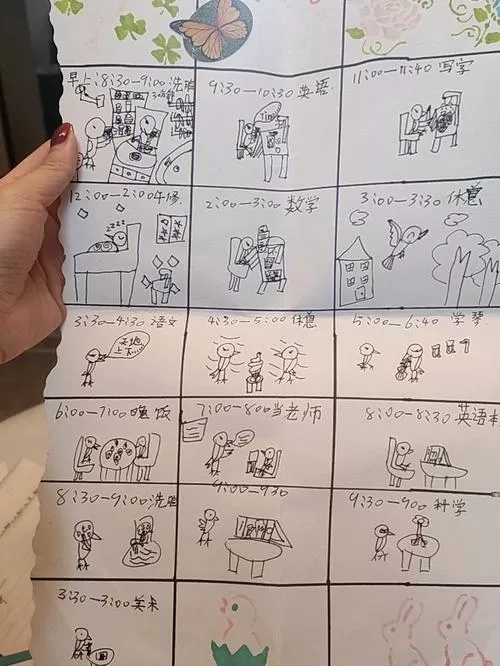 早上:8:30—9:00 洗脸
9:30—10:30 英语
11:00—11:40 写字
12:00—2:00 午休
zzzz
2:00—3:00 数学
3:00—3:30 休息
3:30—4:30 语文
天地
上下...
4:30—5:00 休息
5:00—6:40 学琴
6:00—7:00 晚饭
7:00—8:00 当老师
8:00—8:30 英语本
8:30—9:00 洗脸
9:00—930
9:30—900 科学
3:30—3:00 美术